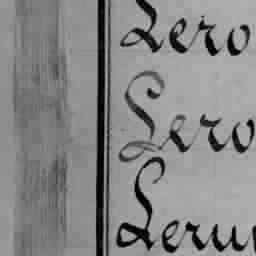 Lero
Lero
Leru